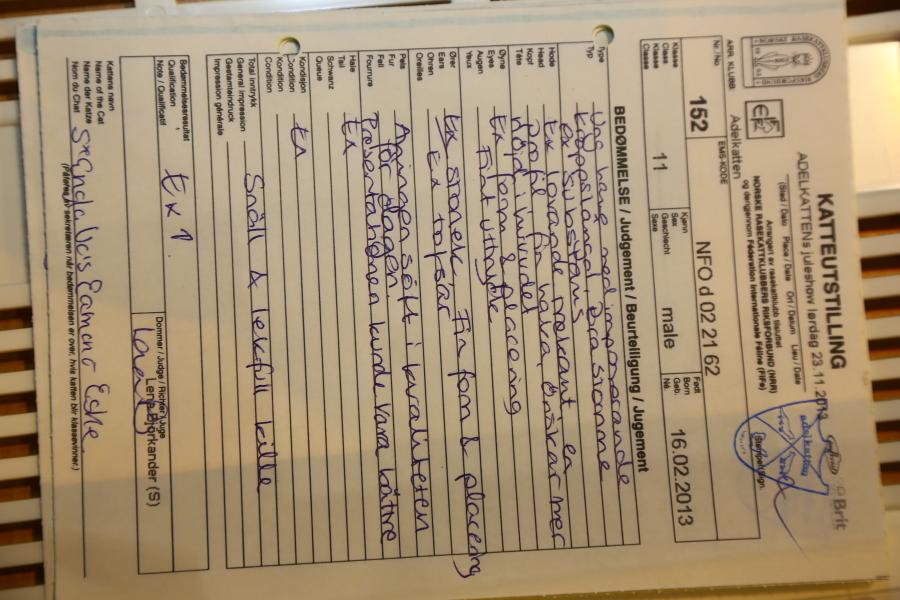 KATTEUTSTILLING
ADELKATTENs juleshow lørdag 23.11.2013
(Sted / Dato Place / Date Ort / Datum Lieu / Date)
Arrangert av rasekattklubb tilsluttet
NORSKE RASEKATTKLUBBERS RIKSFORBUND (NRR)
og derigjennom Fédération Internationale Féline (FIFe)
Brit
adelkatten
(Stempel/Sign.
ARR. KLUBB
Adelkatten
Nr./No
152
EMS-KODE
NFO d 02 21 62
Født
Born
Geb.
Né.
16.02.2013
Klasse
Class
Klasse
Classe
11
Kjønn
Sex
Geschlecht
Sexe
male
BEDØMMELSE / Judgement / Beurteiligung / Jugement
Type
Typ
Ung hane med imponerande
kroppslängd bra stomme
ex substans
Hode
Head
Kopf
Tête
Ex lovande prekant en
Profil fin haka, önskar mer
höjd i huvudet
Øyne
Eyes
Augen
Yeux
Ex form & placering
Fint uttryck
Ører
Ears
Ohren
Oreilles
Ex storlek. Fin form & placering
Ex tofsar
Pels
Fur
Fell
Fourrure
Aningen soft i kvaliteten
för dagen.
Presentationen kunde vara bättre
Hale
Tail
Schwanz
Queue
Ex
Kondisjon
Condition
Kondition
Condition
Ex
Total inntrykk
General impression
Gestamteindruck
Impression générale
Snäll & lekfull kille
Bedømmelsesresultat
Qualification
Note / Qualificatif
Ex 1
Dommer / Judge / Richter / Juge
Lena Björkander (S)
Kattens navn
Name of the Cat
Name der Katze
Nom du Chat
(Påføres av sekretæren når bedømmelsen er over, hvis katten blir klassevinner.)